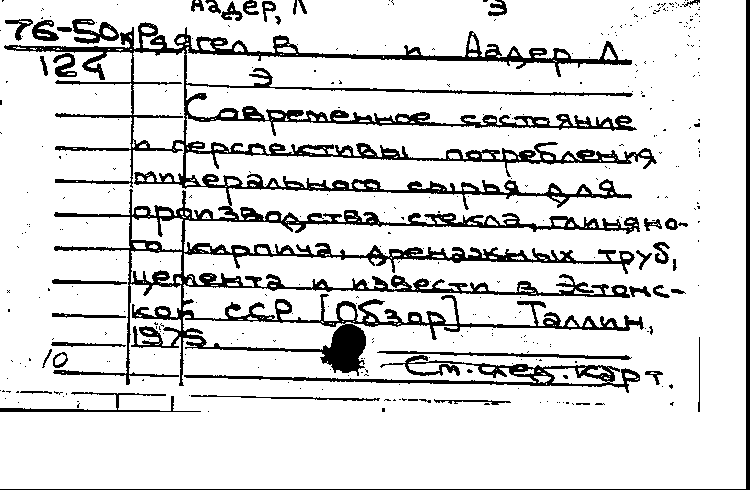 Аадер, Л
Э
76-50к Раягел, В и Аадер, Л
124 Э
Современное состояние
и перспективы потребления
минерального сырья для
производства стекла, глиняно-
го кирпича, дренажных труб,
цемента и извести в Эстонс-
кой ССР. [Обзор] Таллин,
1975.
10
См. след. карт.